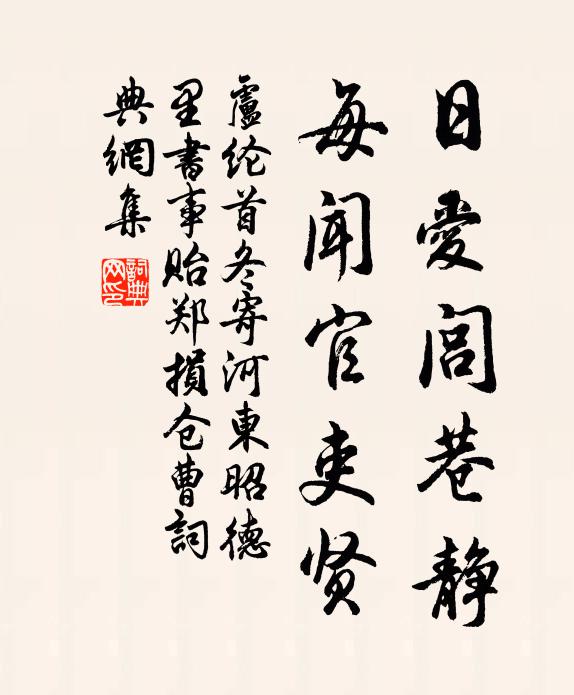 日爱闾巷静
每闻官吏贤
盧纶首冬寄河東昭德
里書事貽郑損仓曹詞
典網集
詞典
网印